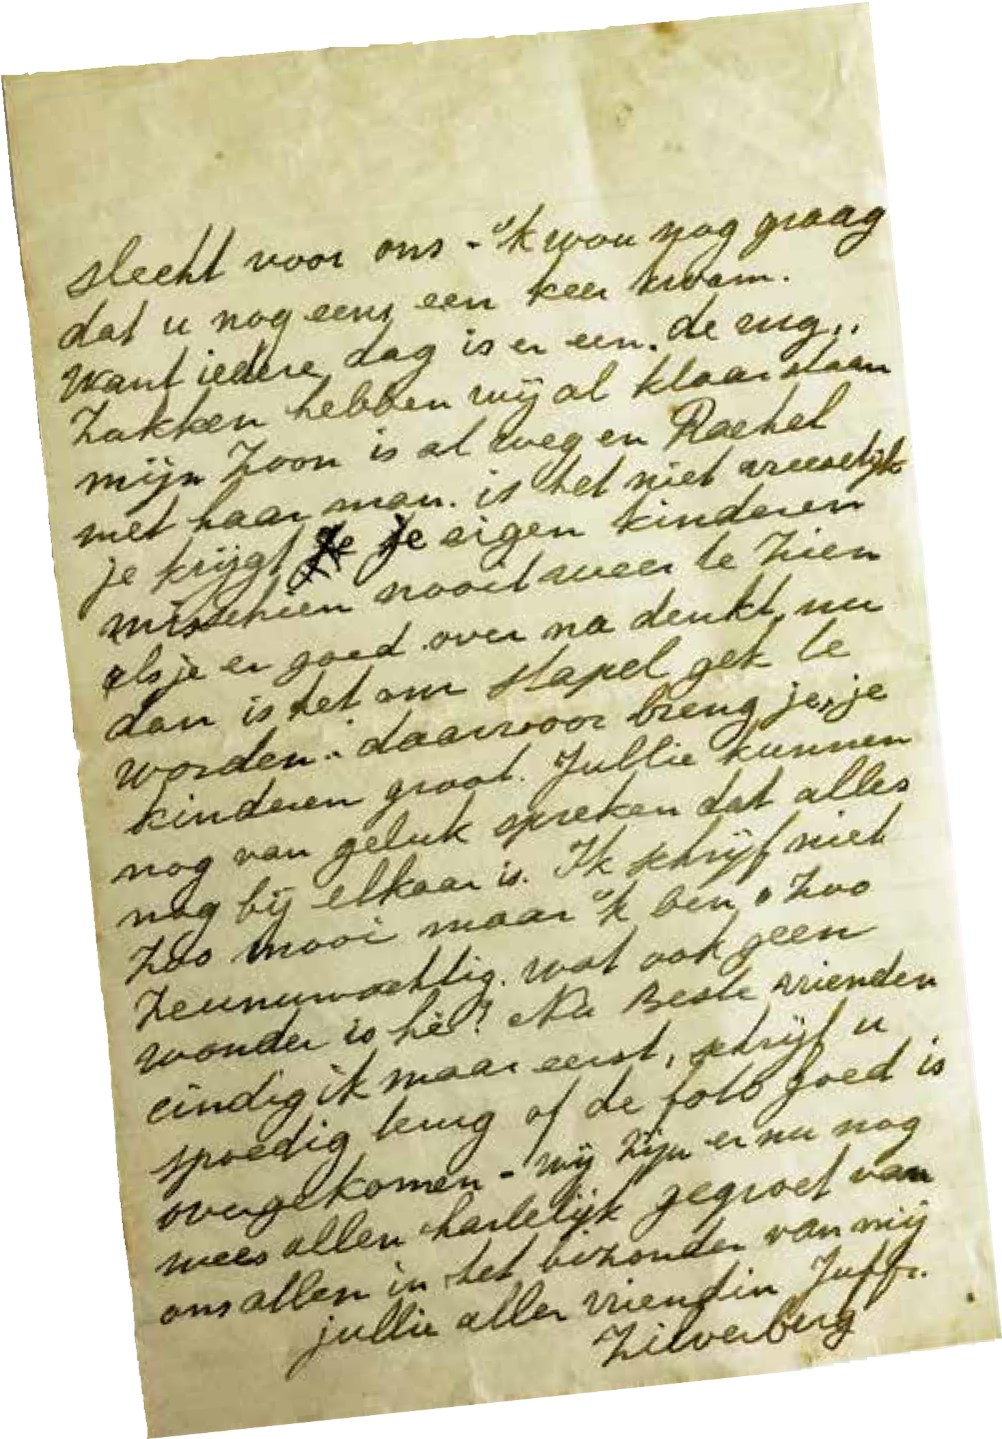 slecht voor ons - 'k wou nog graag
dat u nog eens een keer kwam.
Want iedere dag is er een. de rug..
Zakken hebben wij al klaar staan
mijn Zoon is al weg en Rachel
met haar man. is het niet vreeselijk
je krijgt je eigen kinderen
misschien nooit weer te Zien
als je er goed over na denkt, nu
dan is het om stapel gek te
worden. daarvoor breng je, je
kinderen groot. Jullie kunnen
nog van geluk spreken dat alles
nog bij elkaar is. Ik schrijf niet
Zoo mooi maar 'k ben Zoo
Zeunuwachtig. wat ook geen
wonder is hè? Nu Beste vrienden
eindig ik maar eerst, schrijf u
spoedig terug of de foto goed is
overgekomen - wij Zijn er nu nog
wees allen hartelijk gegroet van
ons allen in het bizonder van mij
jullie aller vriendin Juffr.
Zilverberg